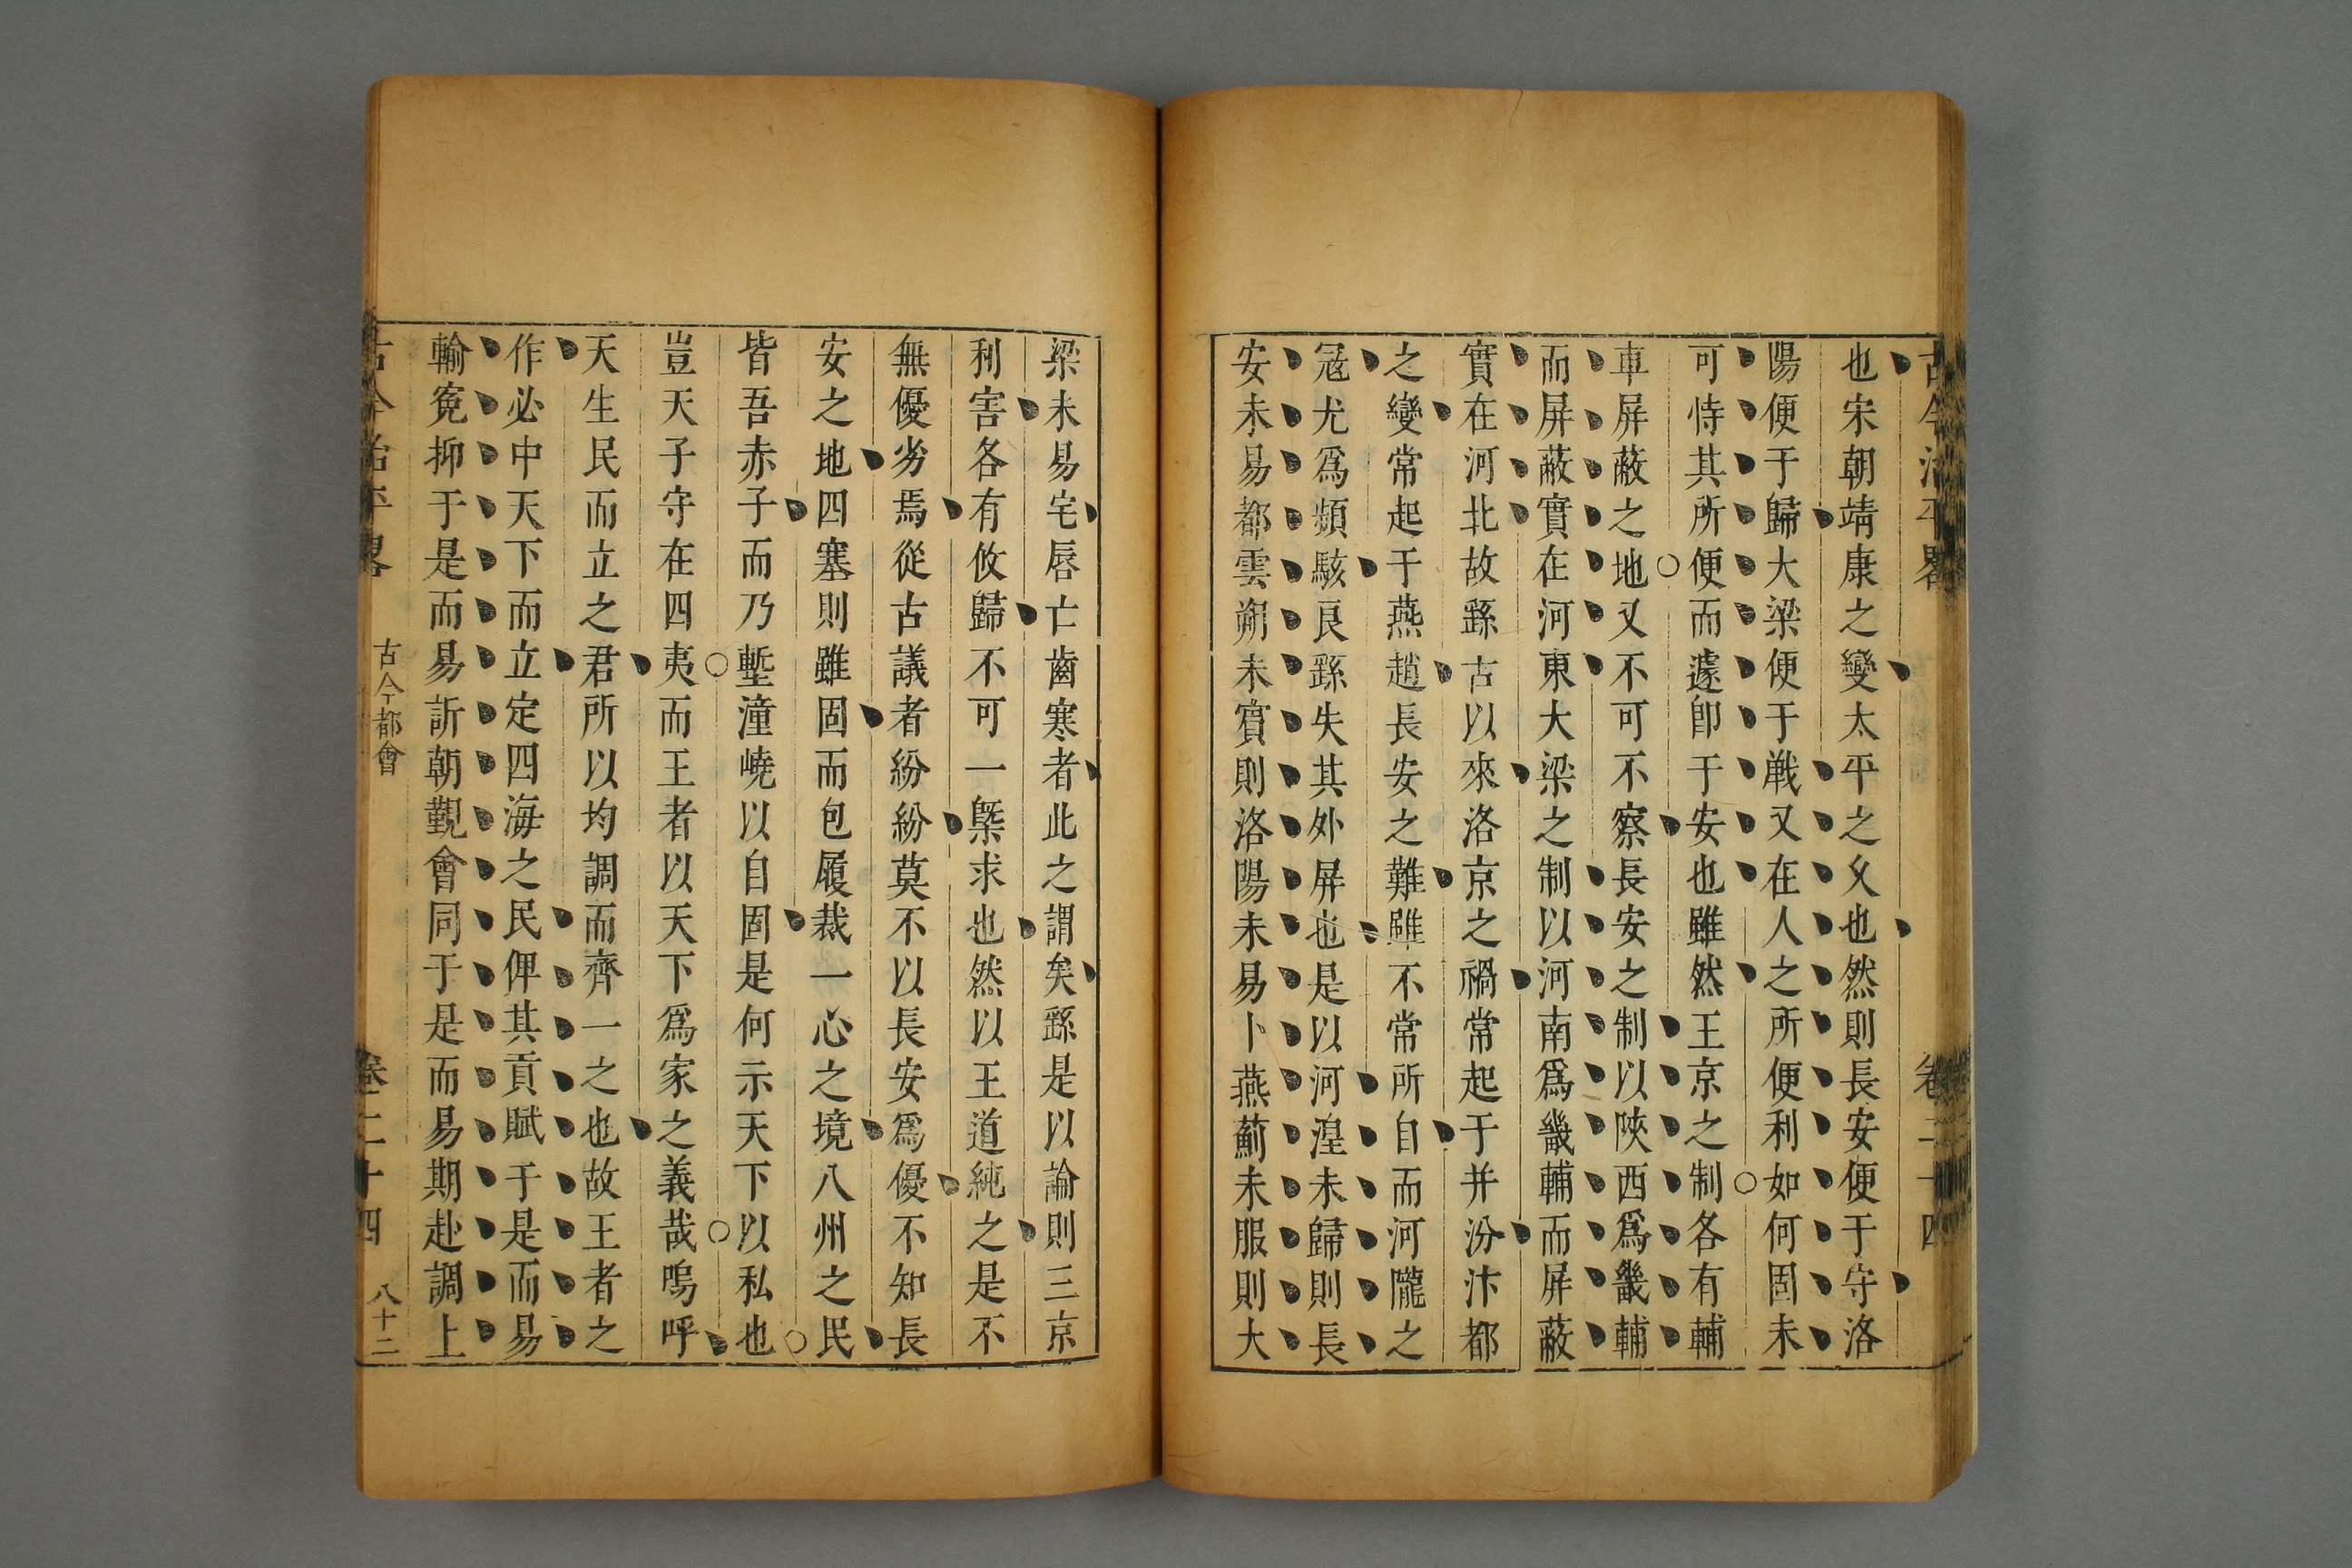 古今治平畧 卷二十四
也宋朝靖康之變太平之久也然則長安便于守洛
陽便于歸大梁便于戰又在人之所便利如何固未
可恃其所便而遽卽于安也雖然王京之制各有輔
車屏蔽之地又不可不察長安之制以陝西爲畿輔
而屏蔽實在河東大梁之制以河南爲畿輔而屏蔽
實在河北故繇古以來洛京之禍常起于并汾汴都
之變常起于燕趙長安之難雖不常所自而河隴之
冦尤爲頻駭良繇失其外屏也是以河湟未歸則長
安未易都雲朔未賓則洛陽未易卜燕薊未服則大
梁未易宅唇亡齒寒者此之謂矣繇是以論則三京
利害各有攸歸不可一槩求也然以王道純之是不
無優劣焉從古議者紛紛莫不以長安爲優不知長
安之地四塞則雖固而包履裁一心之境八州之民
皆吾赤子而乃塹潼嶢以自固是何示天下以私也
豈天子守在四夷而王者以天下爲家之義哉嗚呼
天生民而立之君所以均調而齊一之也故王者之
作必中天下而立定四海之民俾其貢賦于是而易
輸寃抑于是而易訴朝覲會同于是而易期赴調上
古今治平畧 古今都會 卷二十四 八十二